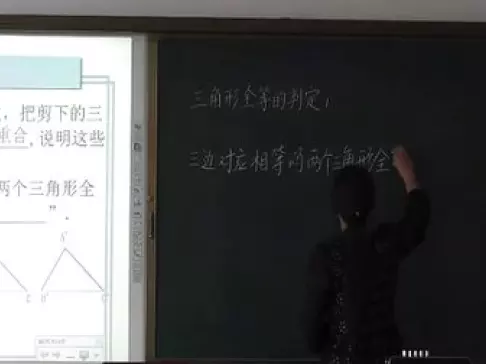 把剪下的三
重合，说明这些
两个三角形全
”.
三角形全等的判定：
三边对应相等的两个三角形全